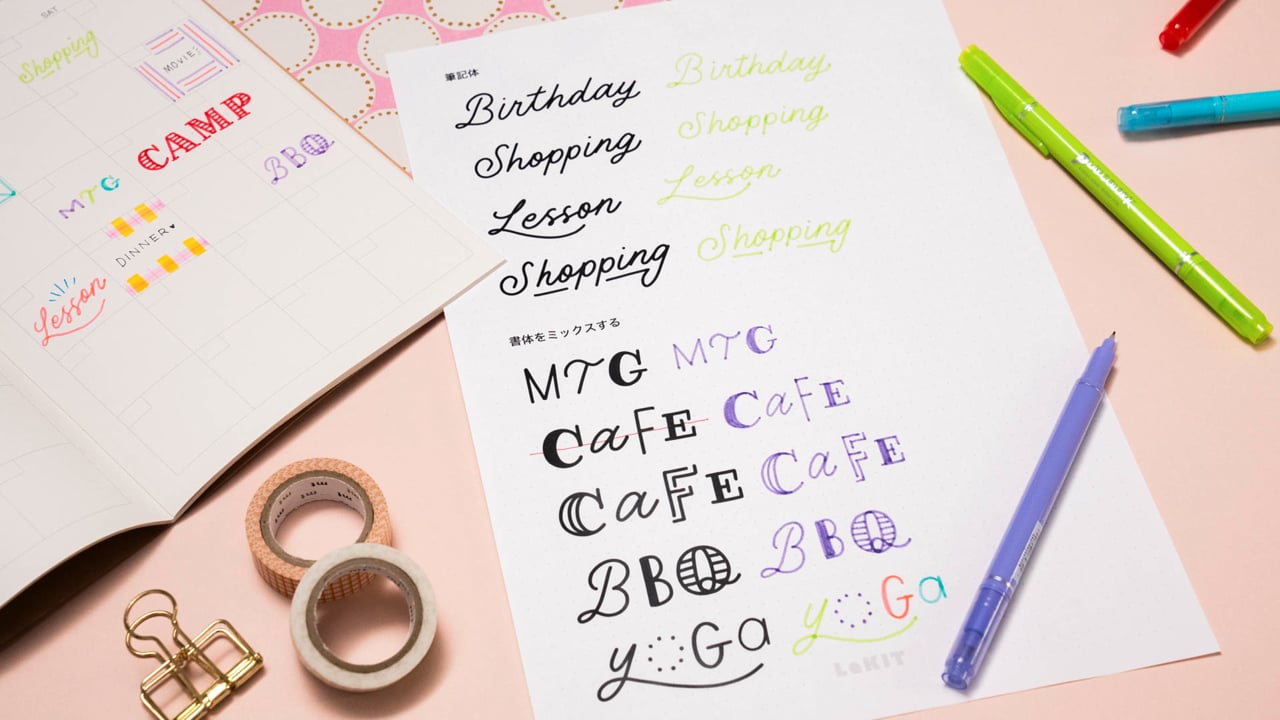 SAT
Shopping
MOVIE
CAMP
MTG
BBQ
DINNER♥
Lesson
筆記体
Birthday Birthday
Shopping Shopping
Lesson Lesson
Shopping Shopping
書体をミックスする
MTG MTG
CaFE CaFE
CaFE CaFE
BBQ BBQ
yoGa yoGa
LaKIT
mt